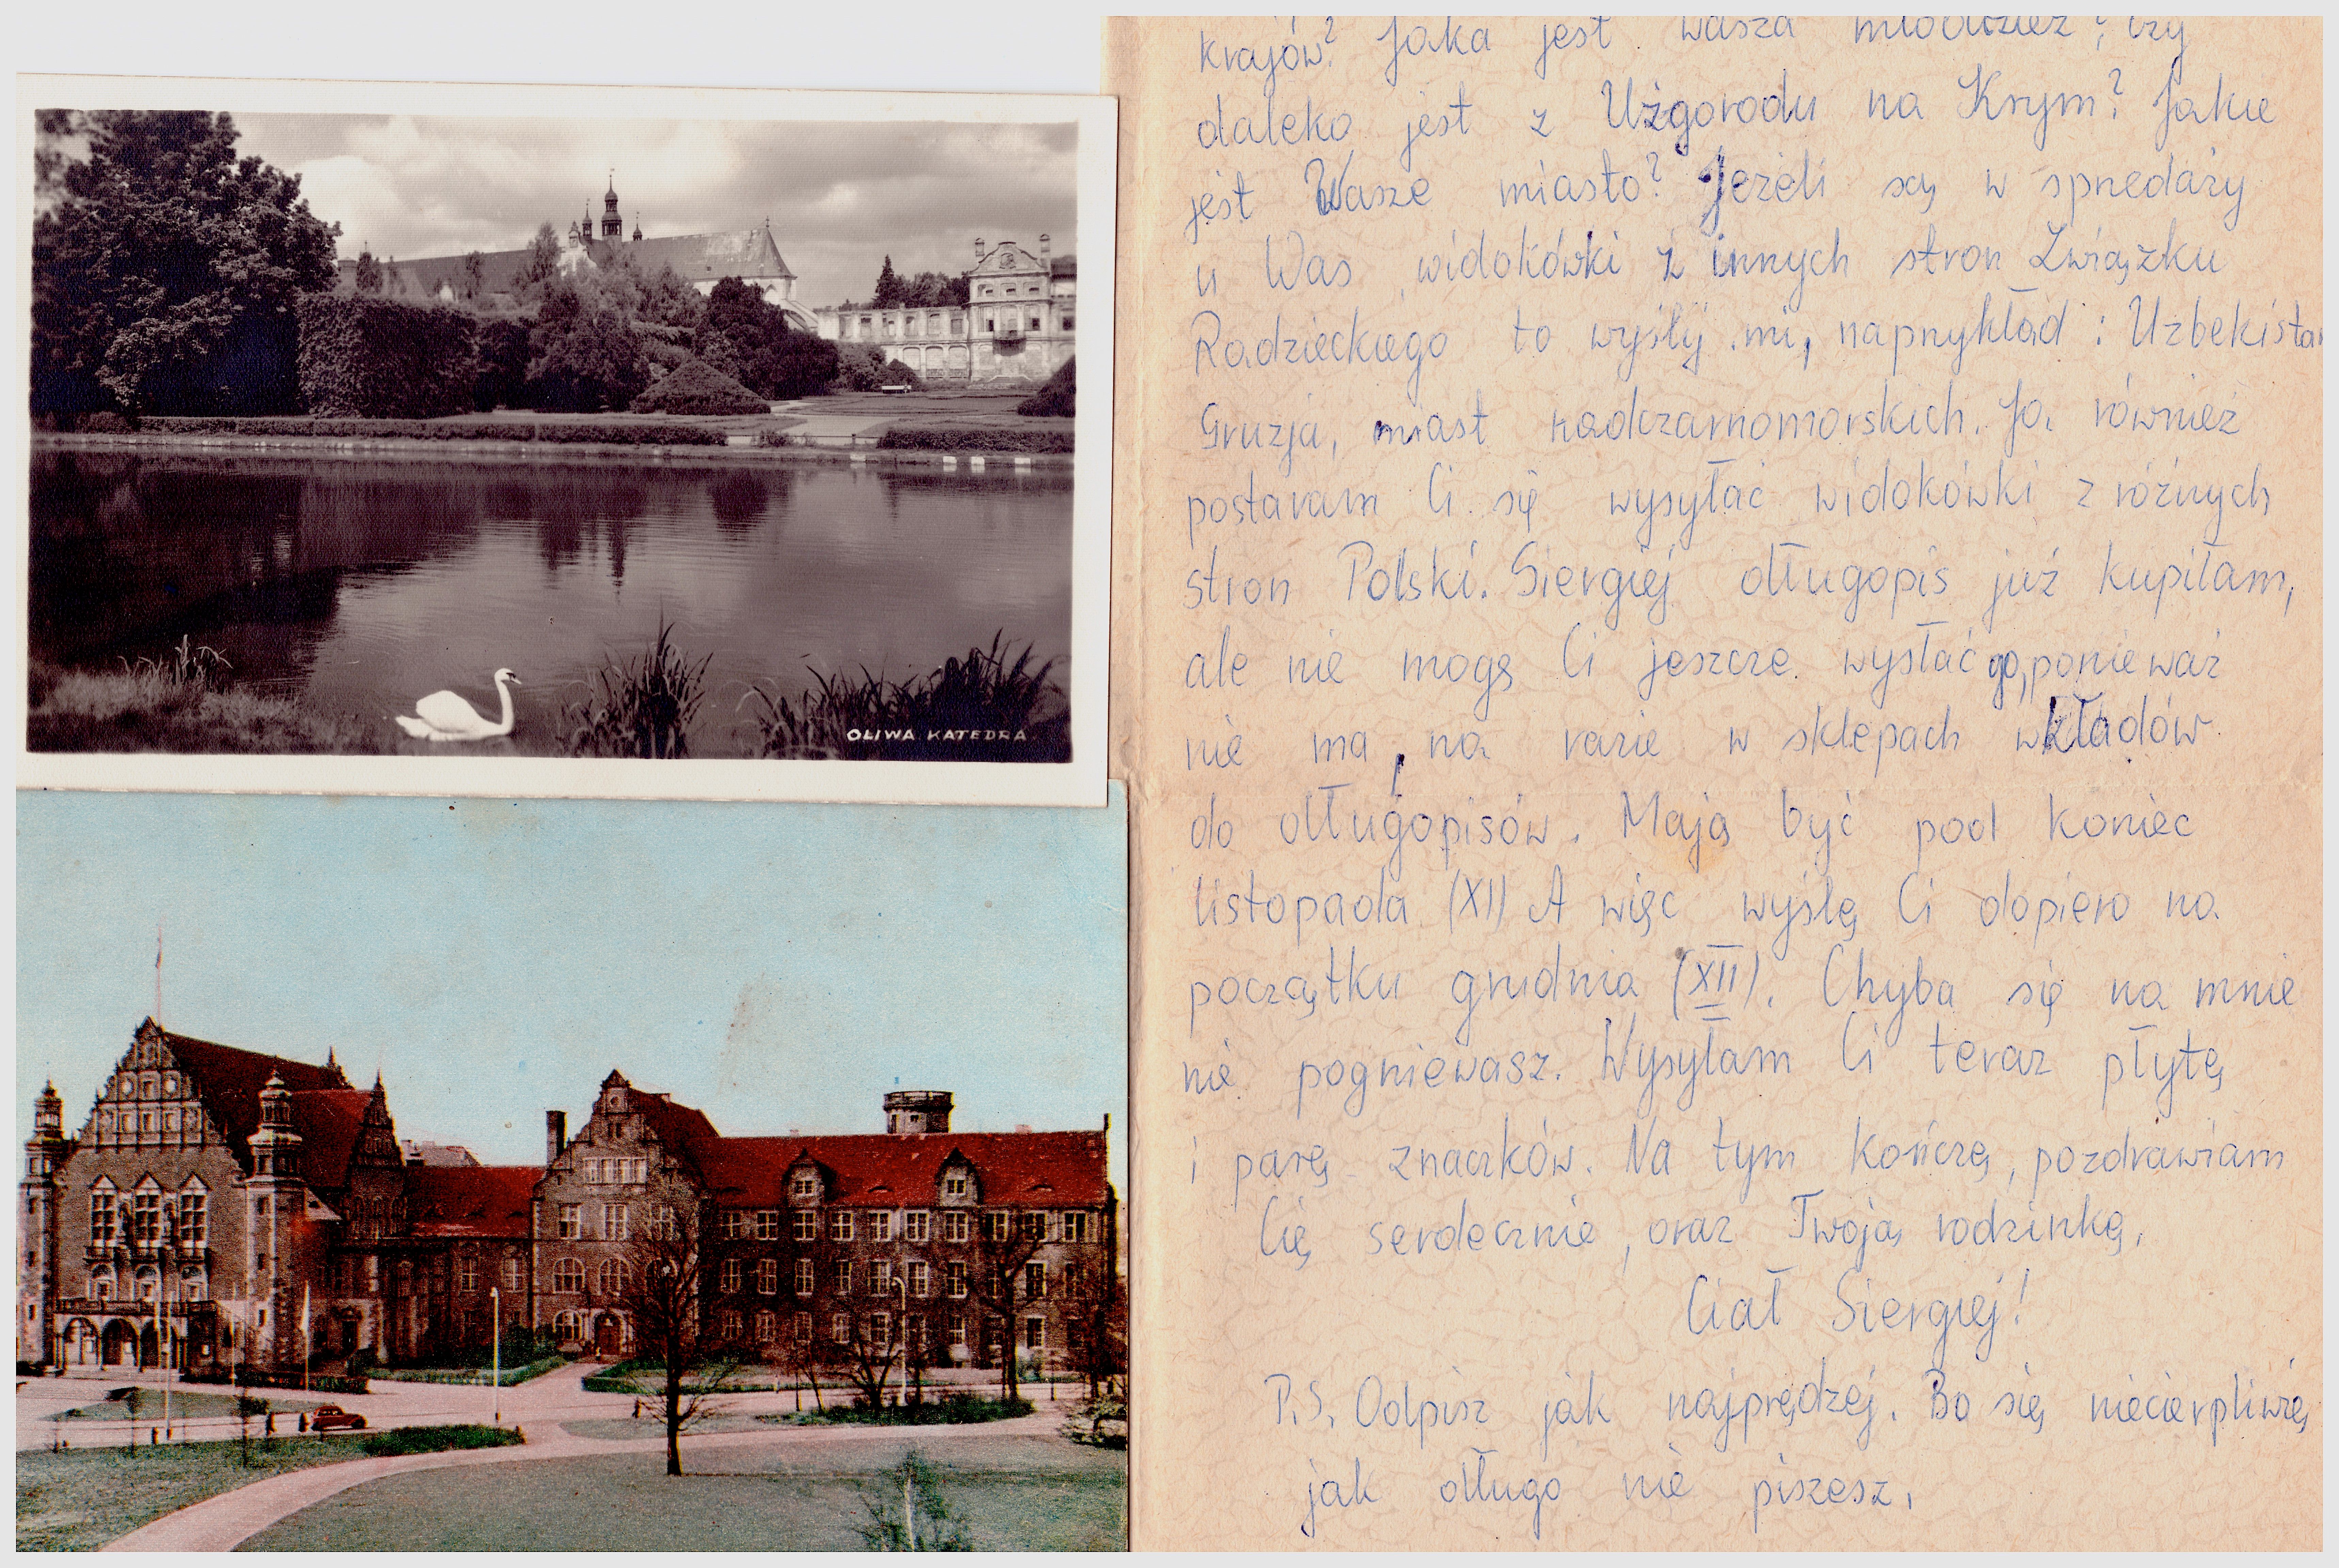 OLIWA KATEDRA.
krajów? Jaka jest wasza młodzież? czy
daleko jest z Użgorodu na Krym? Jakie
jest Wasze miasto? Jeżeli są w spnedaży
u Was widokówki z innych stron Związku
Radzieckiego to wyślij mi, napnykład: Uzbekistan
Gruzja, miast nadczarnomorskich. Ja również
postaram Ci się wysyłać widokówki z różnych
stron Polski. Siergiej długopis już kupiłam,
ale nie mogę Ci jeszcze wysłać go, ponieważ
nie ma, na razie w sklepach wkładów
do długopisów. Mają być pod koniec
listopada (XI) A więc wyślę Ci dopiero na
początku grudnia (XII). Chyba się na mnie
nie pogniewasz. Wysyłam Ci teraz płytę
i parę znaczków. Na tym kończę, pozdrawiam
Cię serdecznie, oraz Twoją rodzinkę.
Ciał Siergiej!
P.S. Odpisz jak najprędzej. Bo się niecierpliwię
jak długo nie piszesz.